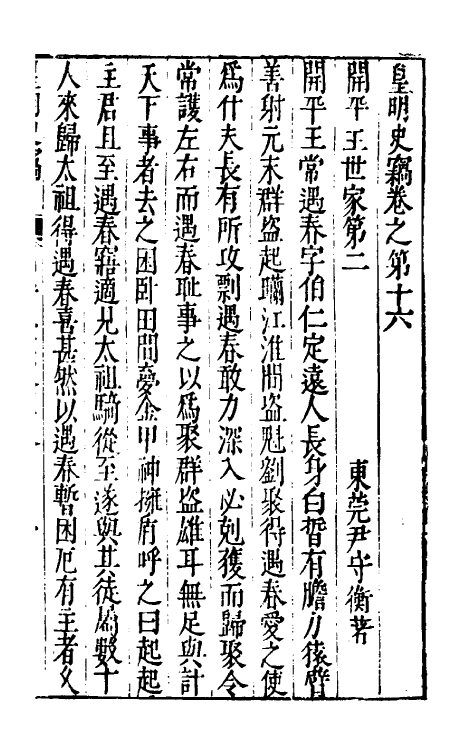 皇明史竊卷之第十六
開平王世家第二
東莞尹守衡著
開平王常遇春字伯仁定遠人長身白晳有膽力猿臂
善射元末群盗起躪江淮間盗魁劉聚得遇春愛之使
爲什夫長有所攻剽遇春敢力深入必剋獲而歸聚令
常護左右而遇春耻事之以爲聚群盗雄耳無足與計
天下事者去之困卧田間夢金甲神擁盾呼之曰起起
主君且至遇春寤適見太祖騎從至遂與其徒屬數十
人來歸太祖得遇春喜甚然以遇春暫困厄有主者夂